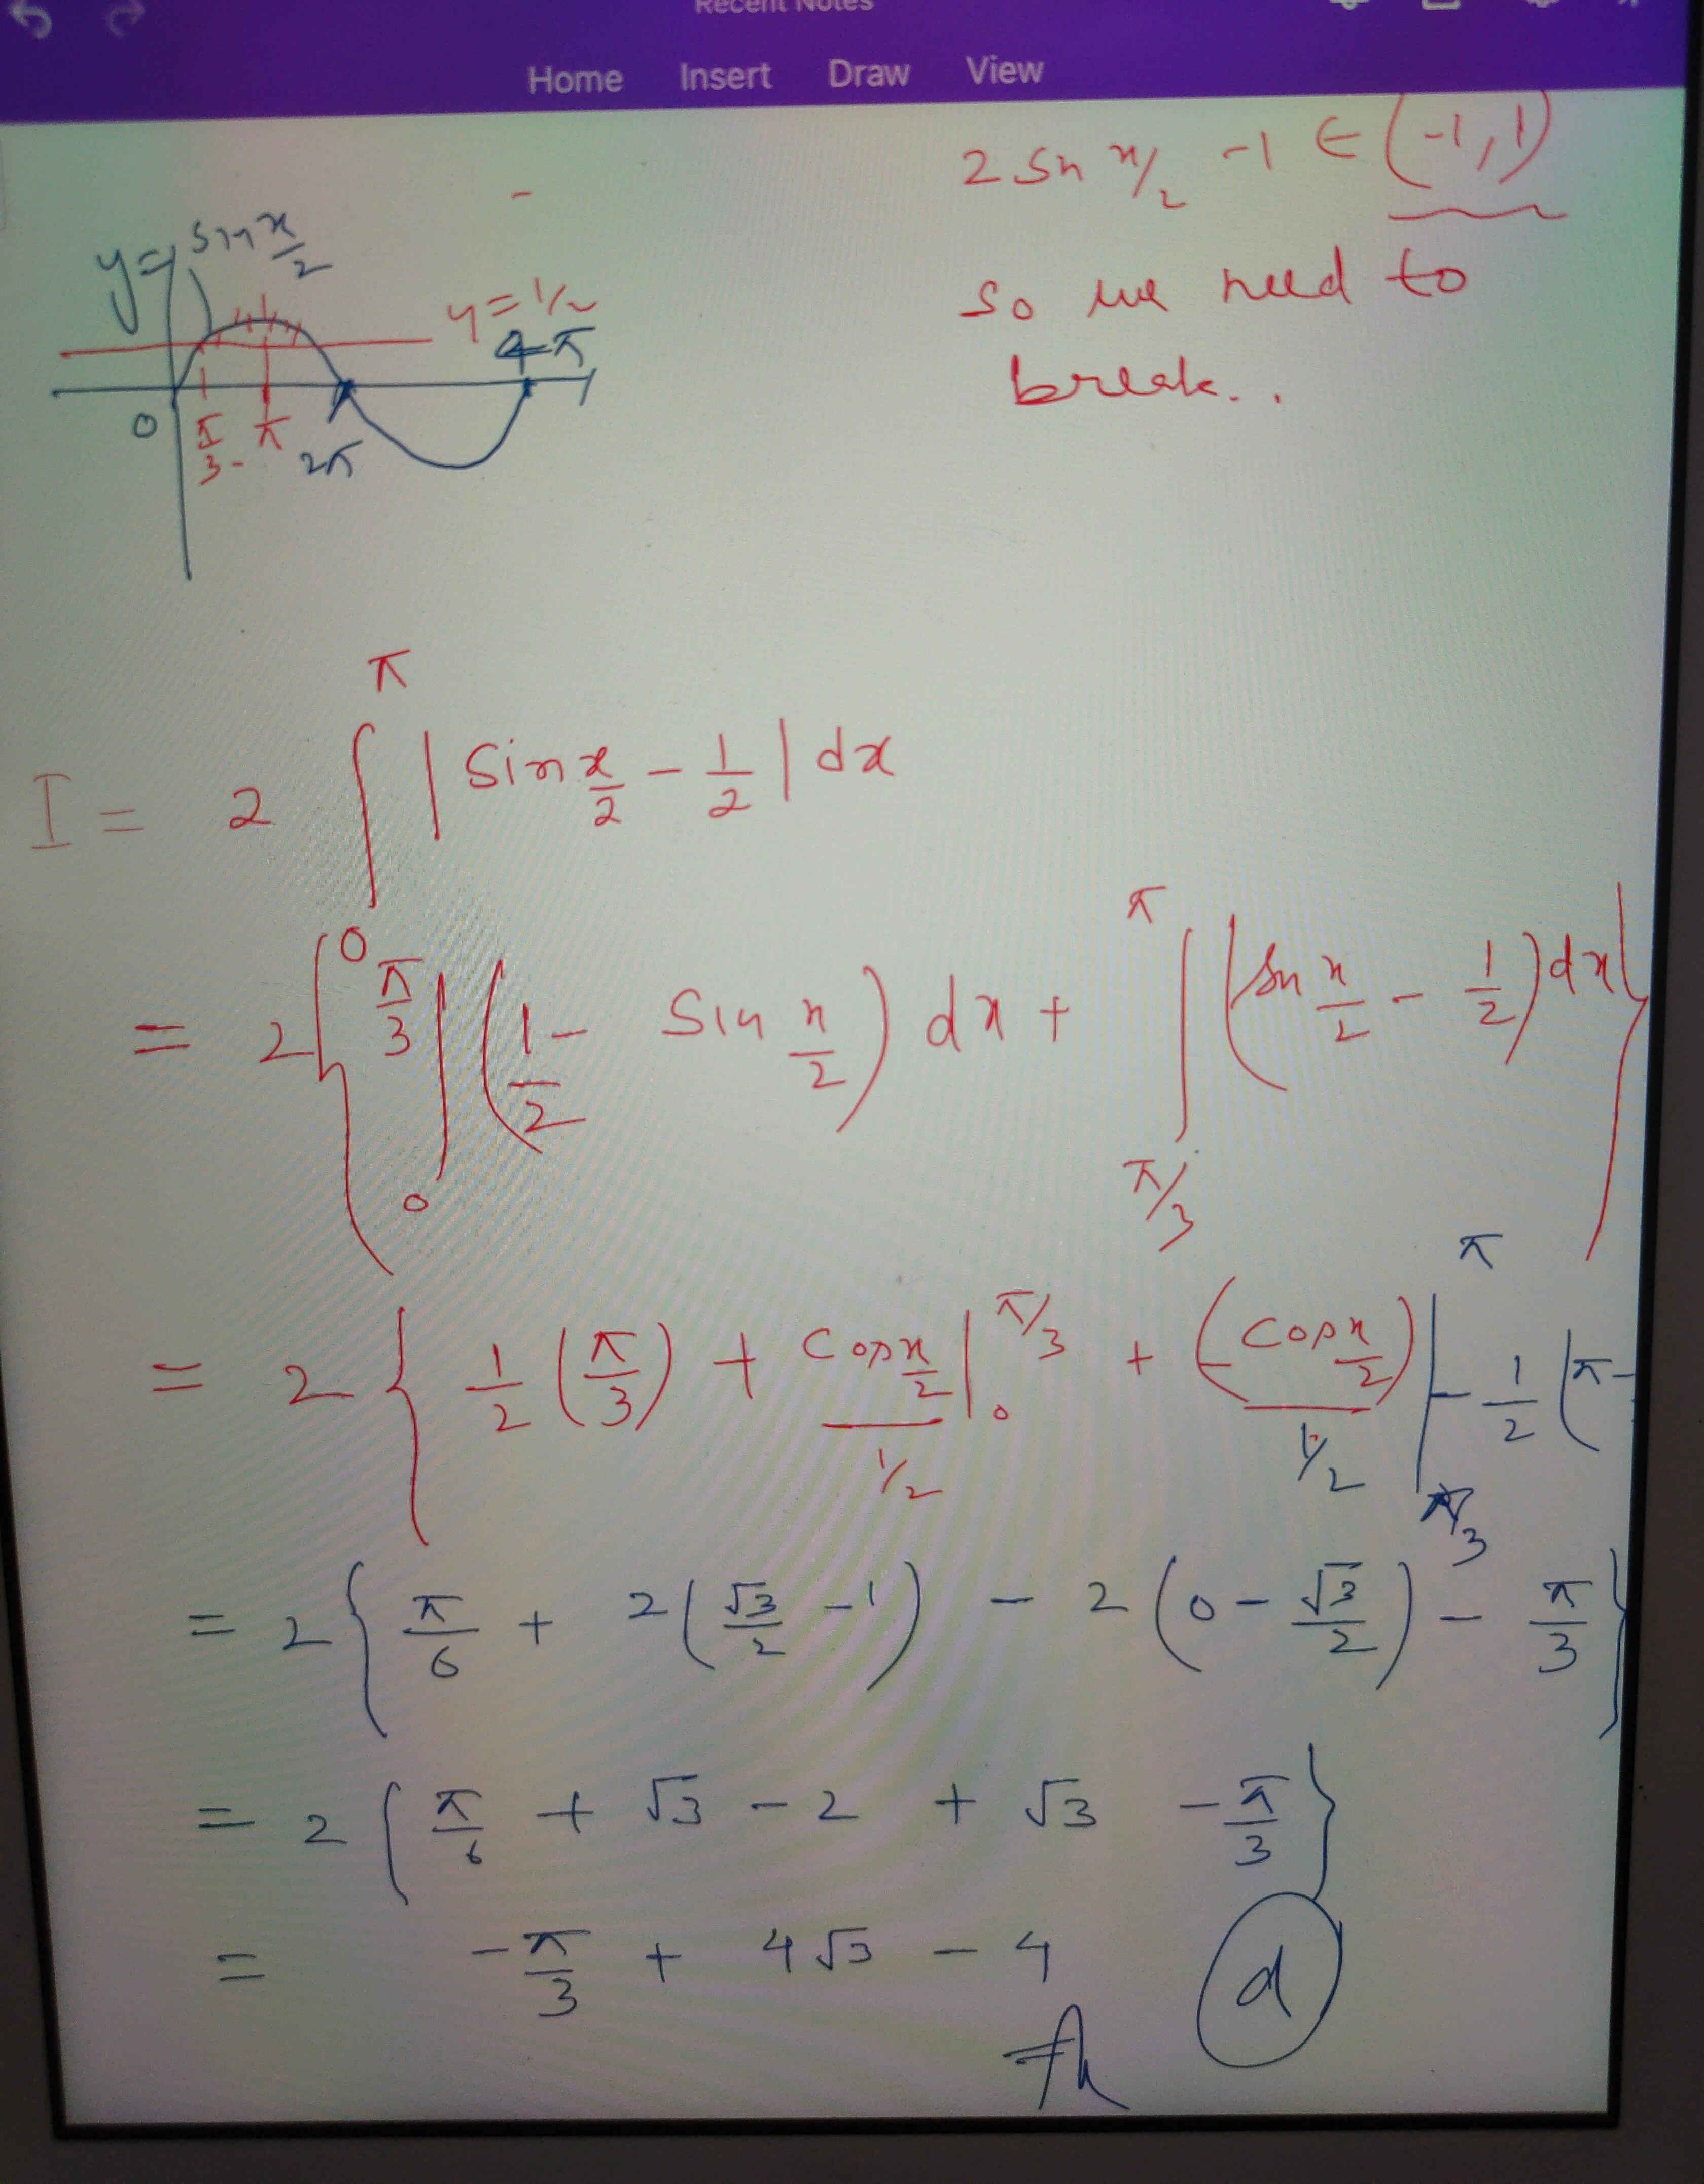 Recent Notes
Home Insert Draw View
2 Sn x/2 -1 ∈ (-1, 1)
so we need to
break..
y = sin x/2
y = 1/2
4π
0 π/3 - π 2π
I = 2 ∫_0^π | Sin x/2 - 1/2 | dx
= 2 { ∫_0^{π/3} (1/2 - Sin x/2) dx + ∫_{π/3}^π (Sn x/2 - 1/2) dx }
= 2 { 1/2 (π/3) + Cos x/2 / 1/2 |_0^{π/3} + (- Cos x/2) / 1/2 |_{π/3}^π - 1/2 (π -
= 2 { π/6 + 2 (√3/2 - 1) - 2 (0 - √3/2) - π/3 }
= 2 { π/6 + √3 - 2 + √3 - π/3 }
= - π/3 + 4√3 - 4
d